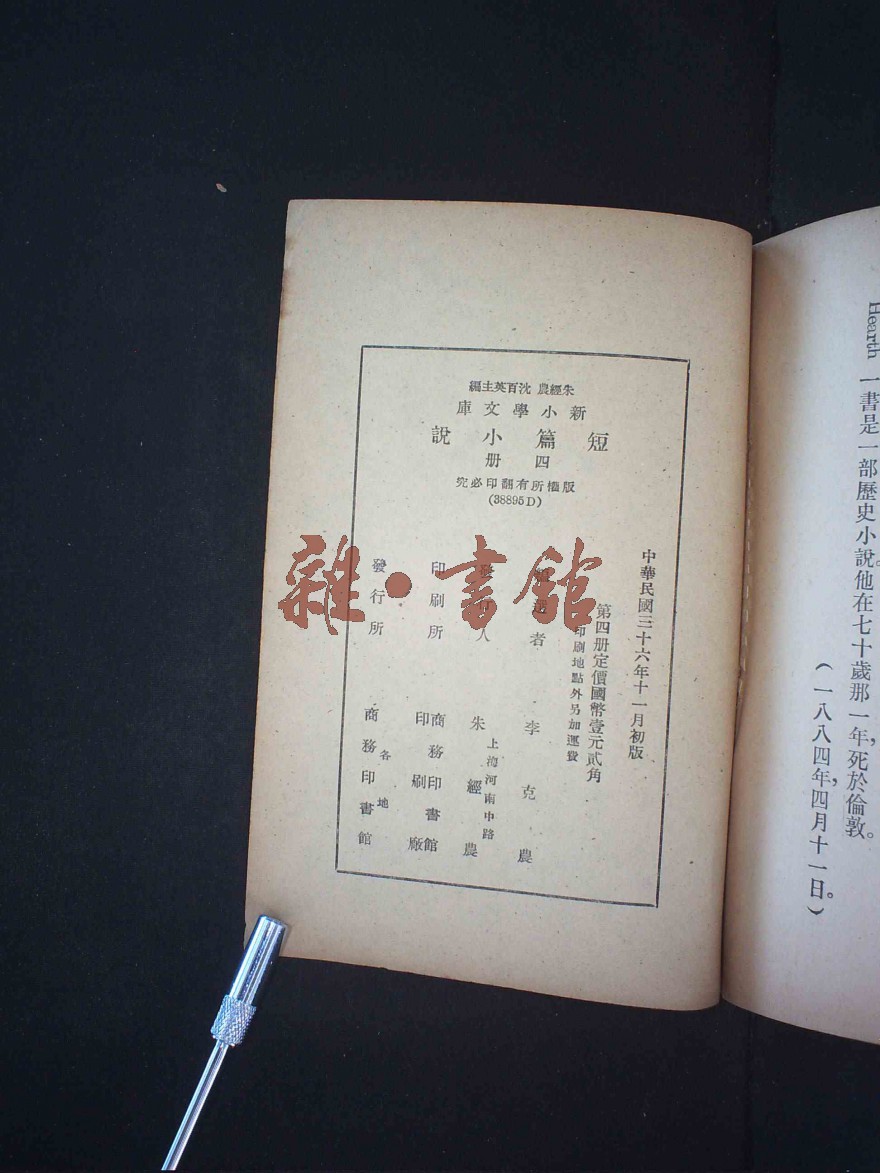 Hearth 一書是一部歷史小說。他在七十歲那一年，死於倫敦。
（一八八四年，四月十一日。）
朱經農 沈百英主編
新小學文庫
短篇小說
四册
版權所有翻印必究
(38895D)
中華民國三十六年十一月初版
第四册定價國幣壹元貳角
印刷地點外另加運費
選者 李克農
發 人 朱經農
上海河南中路
印刷所 商務印書館
印刷廠
發行所 各地
商務印書館
雜·書館